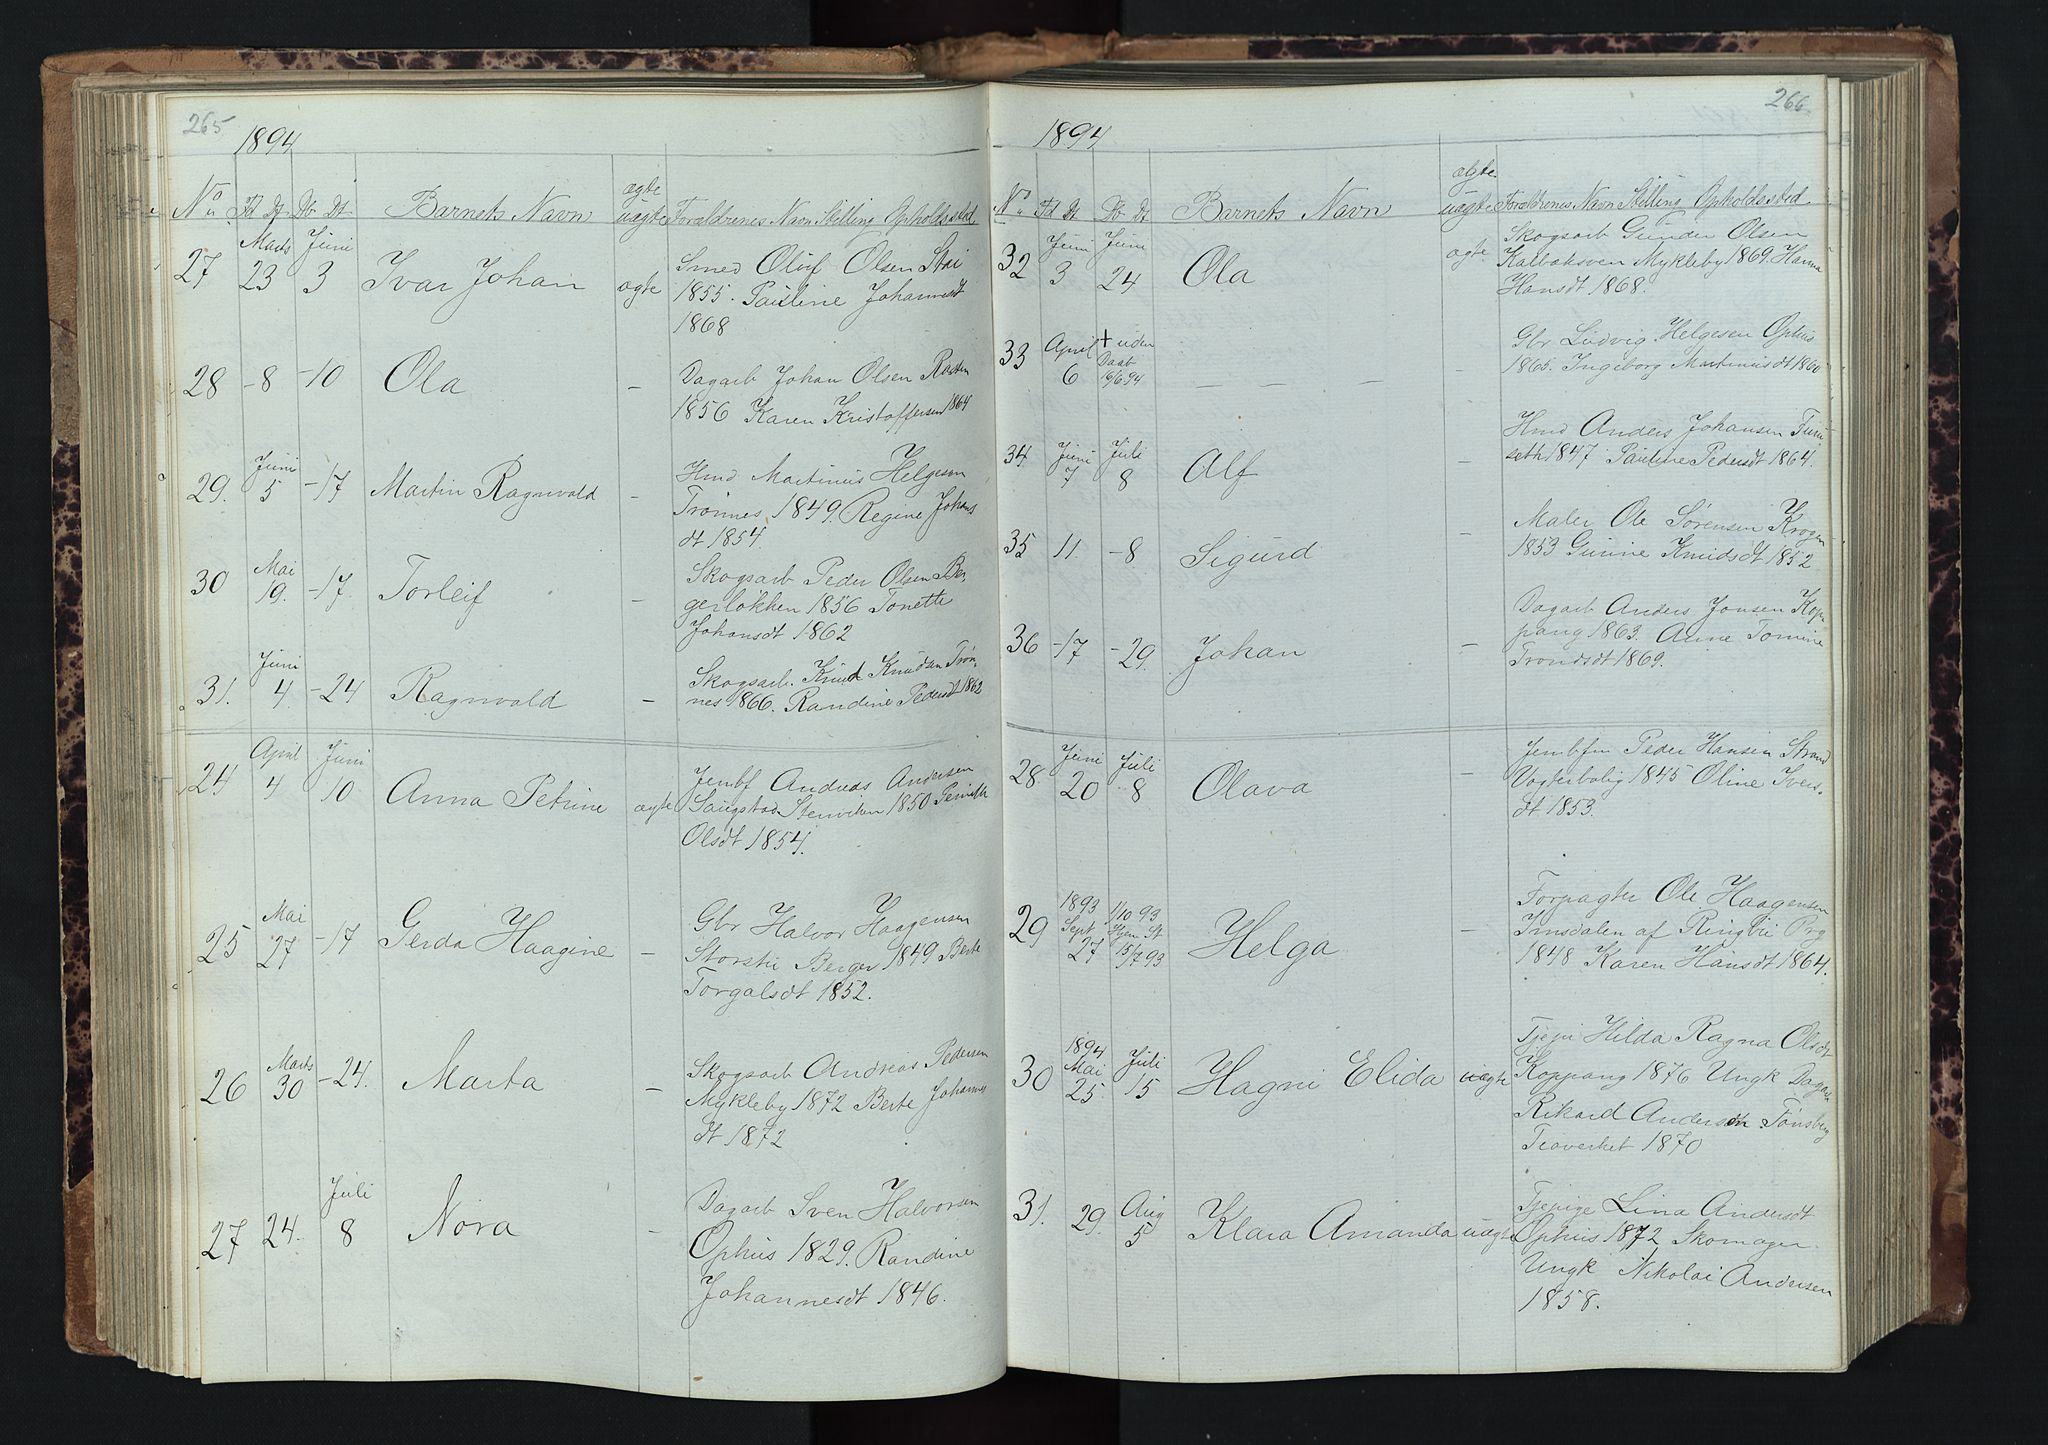 265
1894
No Fd Dt Db Dt Barnets Navn ægte uægte Forældrenes Navn Stilling Opholdssted
27 Marts 23 Juni 3 Ivar Johan ægte Smed Oluf Olsen Stai
1855. Pauline Johannesdt
1868
28 -8 -10 Ola - Dagarb Johan Olsen Rasten
1856 Karen Kristoffersen 1864
29. Juni 5 -17 Martin Ragnvald - Hmd Martinus Helgesen
Trønnes 1849. Regine Johans
dt 1854.
30 Mai 19. -17. Torleif - Skogsarb Peder Olsen Ber-
gerløkken 1856 Tonette
Johansdt 1862
31. Juni 4 -24 Ragnvald - Skogsarb. Knud Knudsen Trøn-
nes 1866. Randine Pedersdt 1862
24 April 4 Juni 10 Anna Petrine ægte Jernbf Andreas Andersen
Saugstad Stenviken 1850
Olsdt 1854.
25 Mai 27 -17 Gerda Haagine - Gbr Halvor Haagensen
Storstu Berger 1849 Berte
Torgalsdt 1852.
26 Marts 30 -24. Marta - Skogsarb Andreas Pedersen
Mykleby 1872 Berte Johannes
dt 1872
27 24. Juli 8 Nora - Dagarb Sven Halvorsen
Ophus 1829. Randine
Johannesdt 1846.
266
1894
No Fd Dt Db Dt Barnets Navn ægte uægte Forældrenes Navn Stilling Opholdssted
32 Juni 3 Juni 24 Ola ægte Skogsarb Gunder Olsen
Mykleby 1869. Hanna
Hansdt 1868.
33 April 6 + uden Daab 16/6 94 - - - - Gbr Ludvig Helgesen Ophus
1865. Ingeborg Martinusdt 1860
34 Juni 7 Juli 8 Alf - Hmd Anders Johansen Furu
seth 1847 Pauline Pedersdt 1864.
35 11. -8 Sigurd - Maler Ole Sørensen Krogen
1853 Gunine Knudsdt 1852
36 -17 -29. Johan - Dagarb Anders Jonsen Kop
pang 1863. Anne Tomine
Trondsdt 1869.
28. Juni 20 Juli 8 Olava - Jernbfm Peder Hansen Strand
Vogterbolig 1845 Oline Ivers-
dt 1853.
29 1893 Sept 27 1/10 93 Hjem St 15/7 93 Helga - Forpagter Ole Haagensen
Imsdalen af Ringbu Prg
1848 Karen Hansdt 1864.
30 1894 Mai 25. Juli 15 Hagni Elida uægte Tjepi Hilda Ragna Olsdt
Koppang 1876 Ungk Dagarb
Rikard Andersen Tønsberg
Traverket 1870
31. 29. Aug 5 Klara Amanda uægte Tjepige Lina Andersdt
Ophus 1872 Skomager
Ungk Nikolai Andersen
1858.